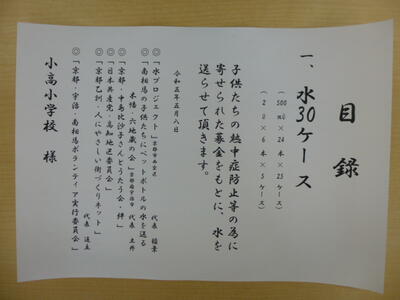 目録
一、水30ケース
(500ml×24本×25ケース)
(2l×6本×5ケース)
子供たちの熱中症防止等の為に
寄せられた募金をもとに、水を
送らせて頂きます。
令和五年五月八日
◎「水プロジェクト」 代表 稲葉
◎「南相馬の子供たちにペットボトルの水を送る
木幡・六地蔵の会」 代表 土井
◎「京都・中島比沙子さんとうたう会・絆」
◎「日本共産党・高知地区委員会」
◎「京都乙訓・人にやさしい街づくりネット」
◎「京都・宇治・南相馬ボランティア実行委員会」
小高小学校 様